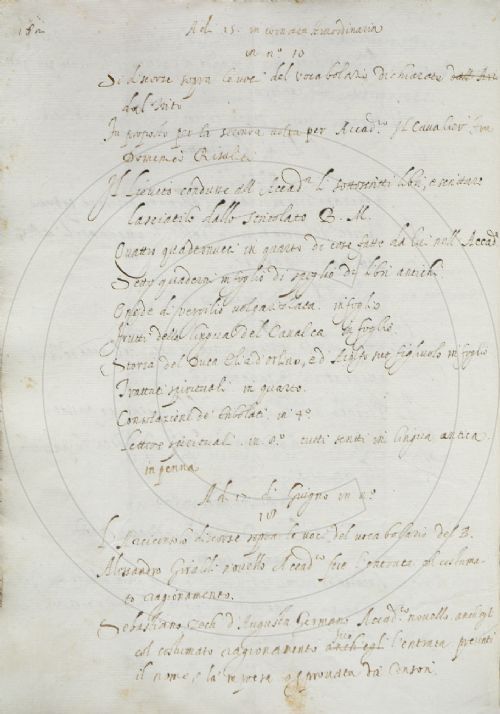 182
A d. 15. in tornata straordinaria
in nº 10
Si discorse sopra le voci del vocabolario dichiarate dall' Ari
dal Trito
Fu proposto per la seconda volta per Accad.º Il Cavalier fra
Domenico
Il condusse all Accad.ª i sottoscritti libri, e scritture
lasciatili dallo Stritolato B. M.
Quattro quadernucci in quarto di cose fatte da lui nell' Accad.ª
Sette quaderni in foglio di spoglio di libri antichi
Eneide di Vergilio volgarizzata. in foglio
I frutti della lingua del Cavalca in foglio.
Storia del Duca Elia d'Orlino, ed suo figliuolo in foglio
Trattati spirituali in quarto.
Consolazione de' Tribolati. in 4º
Lettere spirituali. in 8º tutti scritti in lingua antica
in penna
A d. 17 di Giugno in nº
18
discorse sopra le voci del vocabolario del B.
Alessandro novello Accad.º fece l'entrata col costuma
to ragionamento.
Sebastiano Zech d'Augusta Germano Accad.º novello, anch'egli
col costumato ragionamento fece l'entrata, presentò
il nome, e la impresa approvata da' Censori